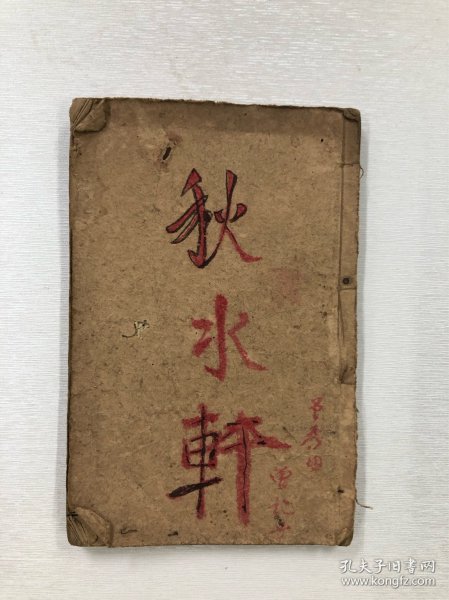 秋水軒
孔夫子旧书网
www.kongfz.com